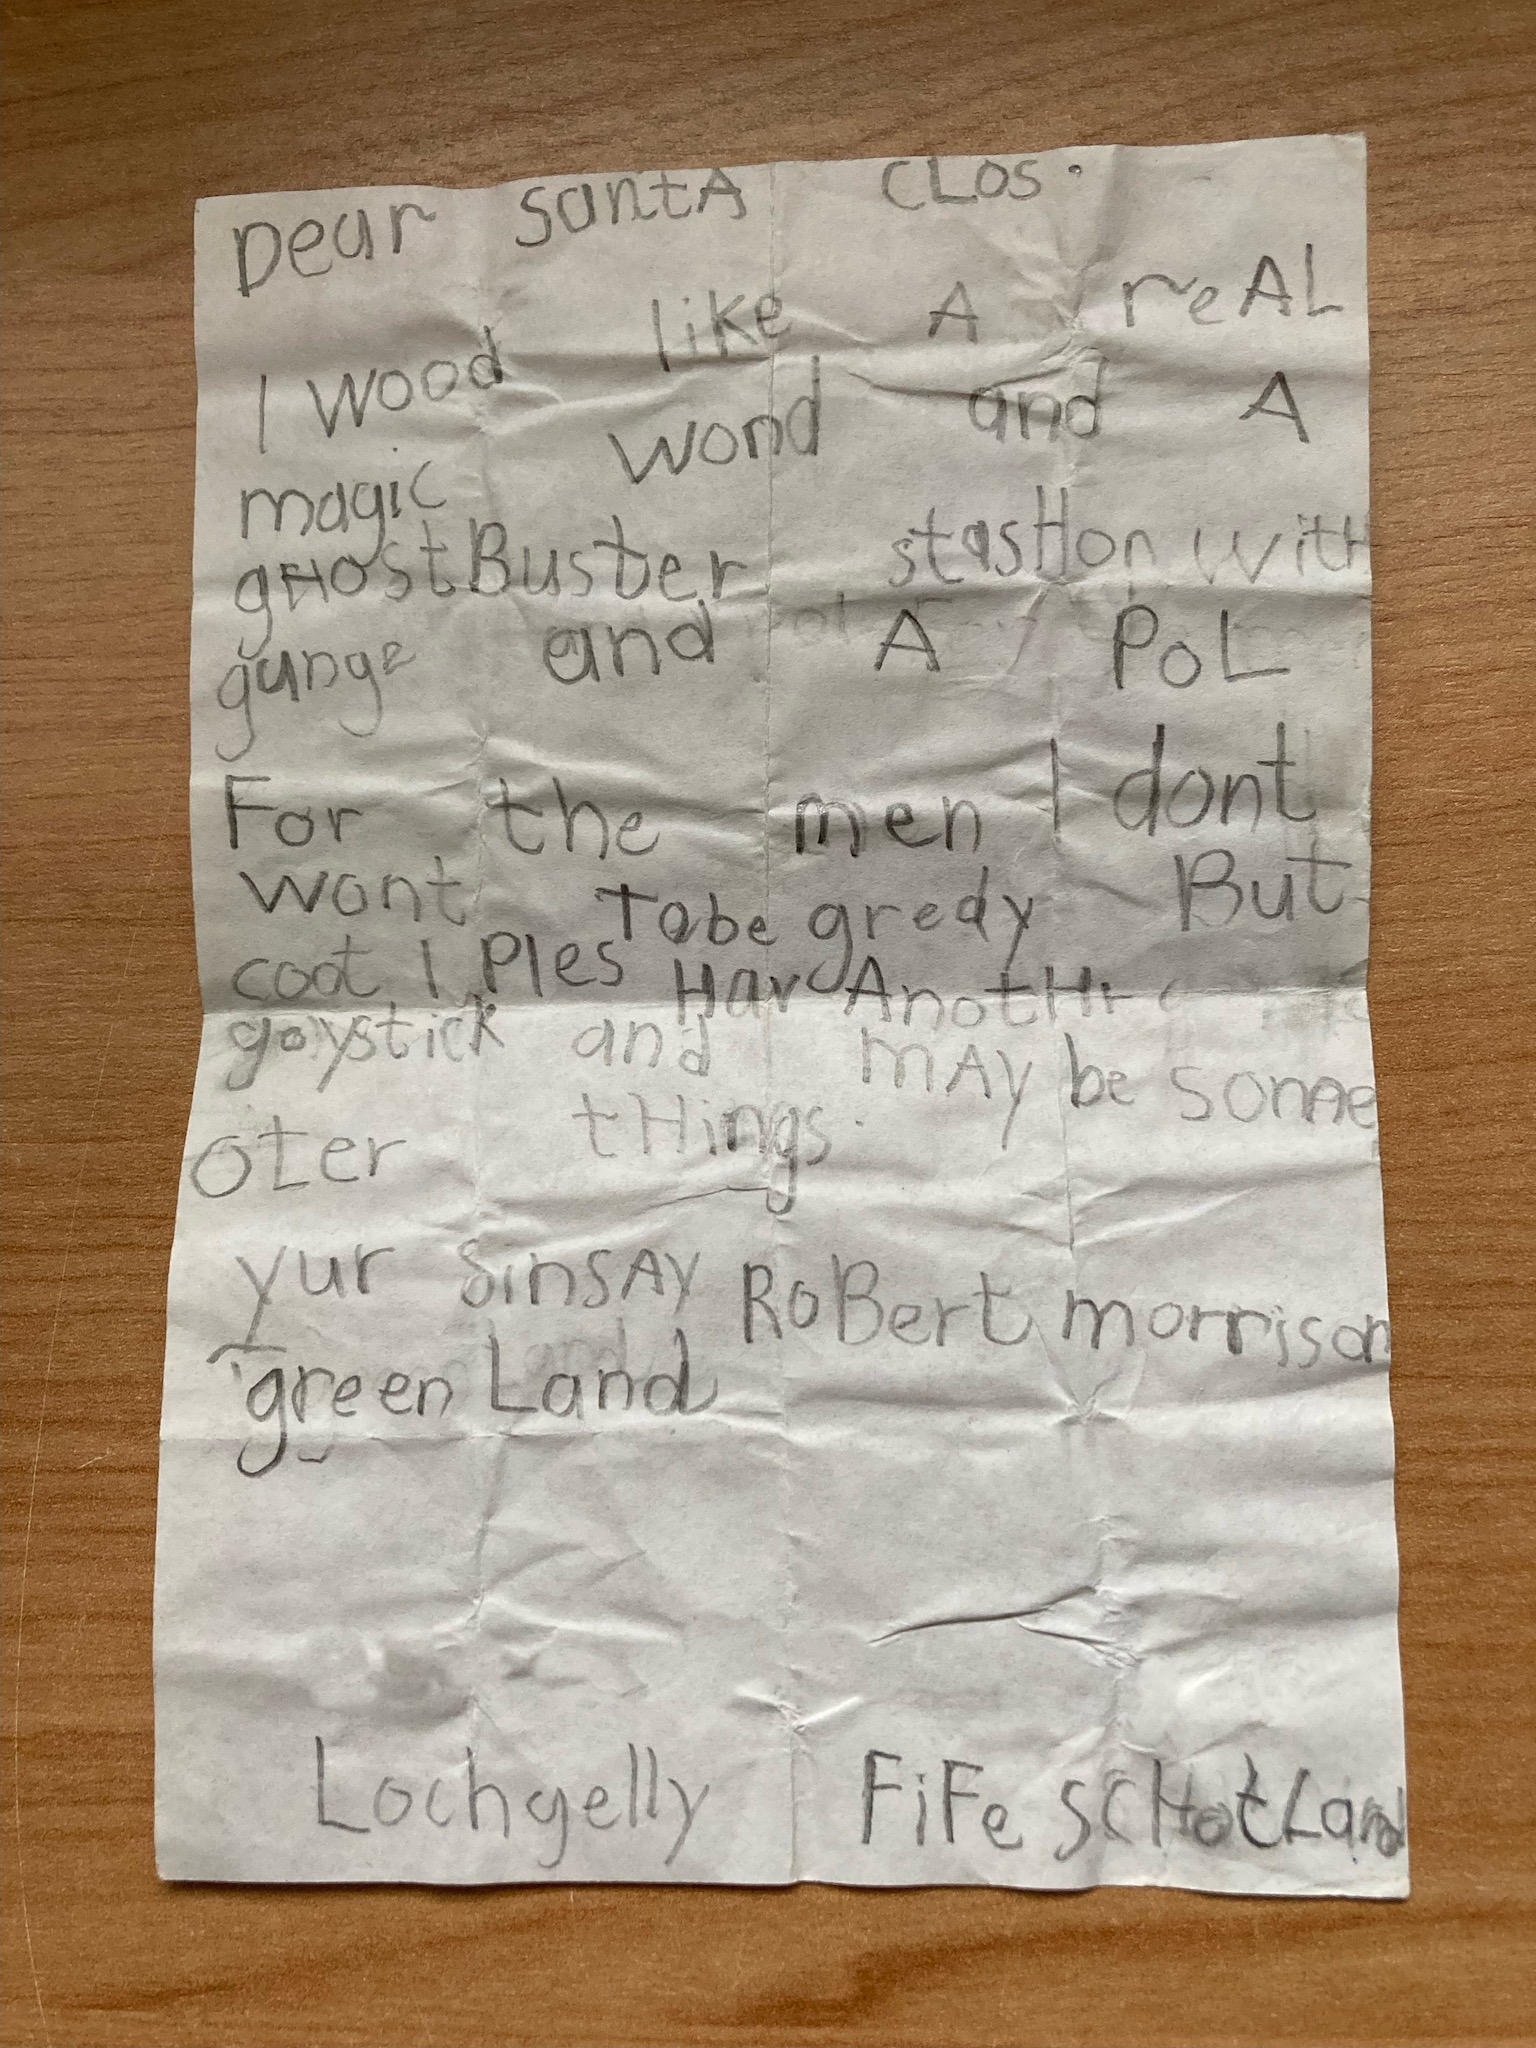 Dear SantA CLOS.
I Wood like A reAL
magic wond and A
gHostBuster stasHon witH
gunge and A PoL
For the men I dont
wont Tobe gredy But
coot I Ples Hav AnotHr
goystick and mAy be somAe
oter tHings.
yur SinsAy RoBert morrison
greenLand
Lochgelly FiFe scHotLand